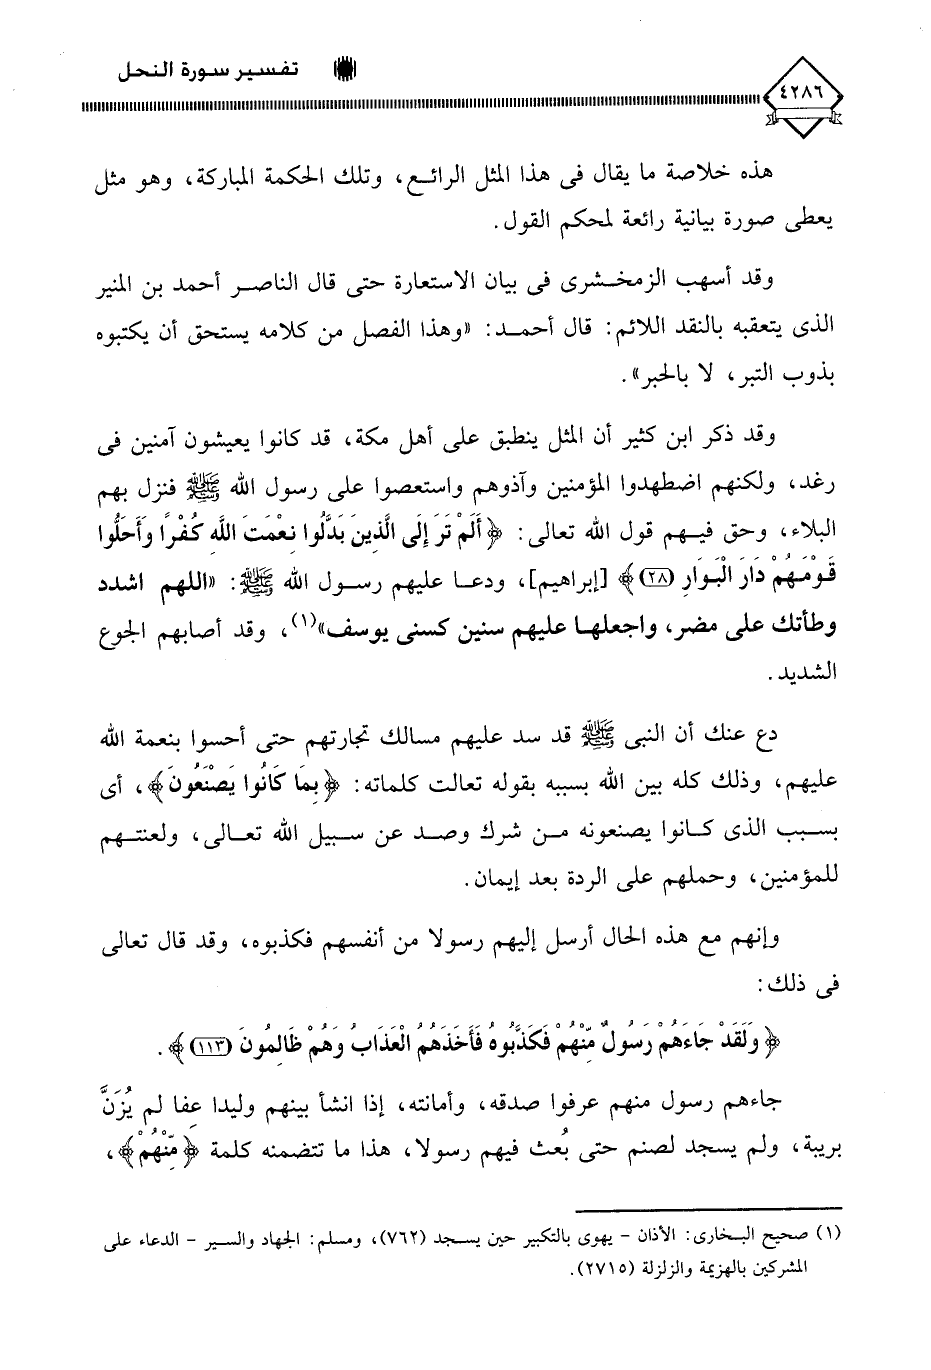 تفسير سورة النحل
٤٢٨٦
هذه خلاصة ما يقال فى هذا المثل الرائع، وتلك الحكمة المباركة، وهو مثل
يعطى صورة بيانية رائعة لمحكم القول.
وقد أسهب الزمخشرى فى بيان الاستعارة حتى قال الناصر أحمد بن المنير
الذى يتعقبه بالنقد اللائم: قال أحمد: «وهذا الفصل من كلامه يستحق أن يكتبوه
بذوب التبر، لا بالحبر».
وقد ذكر ابن كثير أن المثل ينطبق على أهل مكة، قد كانوا يعيشون آمنين فى
رغد، ولكنهم اضطهدوا المؤمنين وآذوهم واستعصوا على رسول الله ﷺ فنزل بهم
البلاء، وحق فيهم قول الله تعالى: ﴿أَلَمْ تَرَ إِلَى الَّذِينَ بَدَّلُوا نِعْمَتَ اللَّهِ كُفْرًا وَأَحَلُّوا
قَوْمَهُمْ دَارَ الْبَوَارِ (٢٨)﴾ [إبراهيم]، ودعا عليهم رسول الله ﷺ: «اللهم اشدد
وطأتك على مضر، واجعلها عليهم سنين كسنى يوسف»(١)، وقد أصابهم الجوع
الشديد.
دع عنك أن النبى ﷺ قد سد عليهم مسالك تجارتهم حتى أحسوا بنعمة الله
عليهم، وذلك كله بين الله بسببه بقوله تعالت كلماته: ﴿بِمَا كَانُوا يَصْنَعُونَ﴾، أى
بسبب الذى كانوا يصنعونه من شرك وصد عن سبيل الله تعالى، ولعنتهم
للمؤمنين، وحملهم على الردة بعد إيمان.
وإنهم مع هذه الحال أرسل إليهم رسولا من أنفسهم فكذبوه، وقد قال تعالى
فى ذلك:
﴿وَلَقَدْ جَاءَهُمْ رَسُولٌ مِّنْهُمْ فَكَذَّبُوهُ فَأَخَذَهُمُ الْعَذَابُ وَهُمْ ظَالِمُونَ (١١٣)﴾.
جاءهم رسول منهم عرفوا صدقه، وأمانته، إذا انشأ بينهم وليدا عفا لم يُزَنَّ
بريبة، ولم يسجد لصنم حتى بُعث فيهم رسولا، هذا ما تتضمنه كلمة ﴿مِّنْهُمْ﴾،
(١) صحيح البخارى: الأذان - يهوى بالتكبير حين يسجد (٧٦٢)، ومسلم: الجهاد والسير - الدعاء على
المشركين بالهزيمة والزلزلة (٢٧١٥).